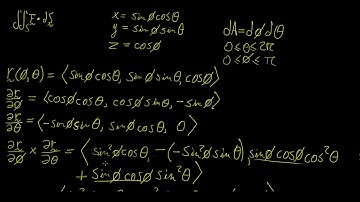 ∬ₛ F̲ · dS̲
x = sinϕcosθ
y = sinϕsinθ
z = cosϕ
dA = dϕdθ
0 ≤ θ ≤ 2π
0 ≤ ϕ ≤ π
r̲(ϕ,θ) = ⟨sinϕcosθ, sinϕsinθ, cosϕ⟩
∂r̲/∂ϕ = ⟨cosϕcosθ, cosϕsinθ, -sinϕ⟩
∂r̲/∂θ = ⟨-sinϕsinθ, sinϕcosθ, 0⟩
∂r̲/∂ϕ × ∂r̲/∂θ = ⟨sin²ϕcosθ, -(-sin²ϕsinθ), sinϕcosϕcos²θ
+ sinϕcosϕsin²θ⟩